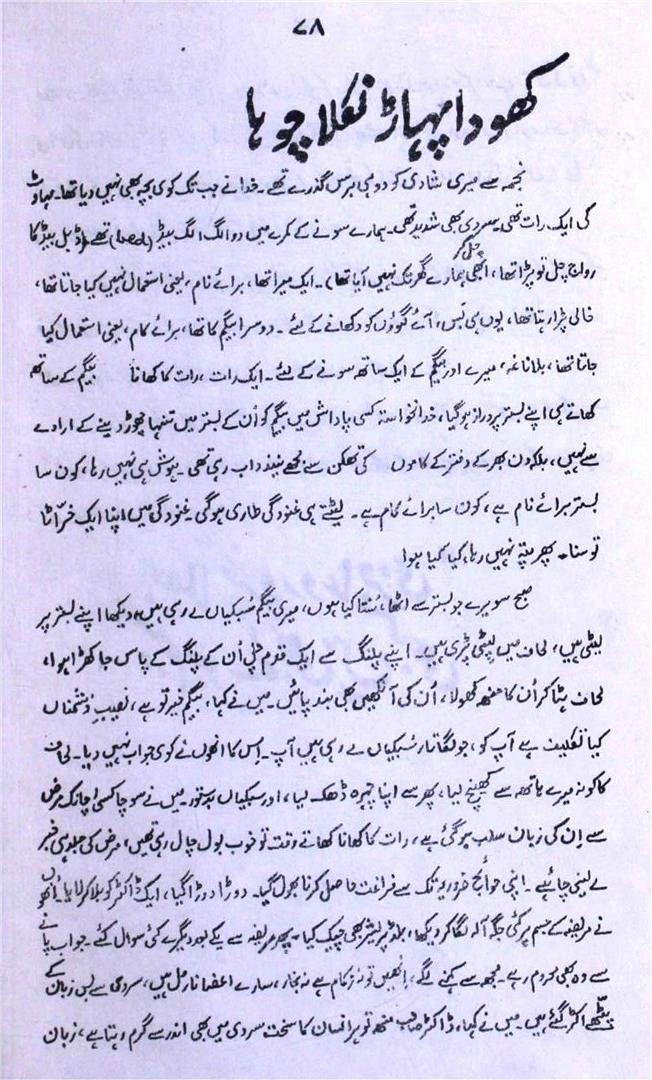 ۷۸
کھودا پہاڑ نکلا چوہا
نجمہ سے میری شادی کو دو ہی برس گذرے تھے۔ خدا نے جب تک کوی بچہ بھی نہیں دیا تھا۔ مہاوٹ
کی ایک رات تھی۔ سردی بھی شدید تھی۔ ہمارے سونے کے کمرے میں دو الگ الگ بیڈ (bed) تھے (ڈبل بیڈ کا
رواج چل تو پڑا تھا، ابھی ہمارے گھر تک چل کر نہیں آیا تھا)۔ ایک میرا تھا، برائے نام، یعنی استعمال نہیں کیا جاتا تھا،
خالی پڑا رہتا تھا، یوں ہی بَس، آئے گیوؤں کو دکھانے کے لئے۔ دوسرا بیگم کا تھا، برائے کام، یعنی استعمال کیا
جاتا تھا، بلا ناغہ، میرے اور بیگم کے ایک ساتھ سونے کے لئے۔ ایک رات، رات کا کھانا بیگم کے ساتھ
کھاتے ہی اپنے بستر پر دراز ہو گیا، خدانخواستہ کسی پاداش میں بیگم کو اُن کے بستر میں تنہا چھوڑ دینے کے ارادے
سے نہیں، بلکہ دن بھر کے دفتر کے کاموں کی تھکن سے مجھے نیند داب رہی تھی۔ ہوش ہی نہیں رہا، کون سا
بستر برائے نام ہے، کون سا برائے کام ہے۔ لیٹتے ہی غنودگی طاری ہو گی۔ غنودگی میں اپنا ایک خرّاٹا
تو سنا۔ پھر پتہ نہیں رہا، کیا کیا ہوا
صبح سویرے جو بستر سے اٹھا، سُنتا کیا ہوں، میری بیگم سُبکیاں لے رہی ہیں، دیکھا اپنے بستر پر
لیٹی ہیں، لحاف میں لپٹی پڑی ہیں۔ اپنے پلنگ سے ایک قدم میں اُن کے پلنگ کے پاس جا کھڑا ہوا،
لحاف ہٹا کر اُن کا منھ کھولا، اُن کی آنکھیں بھی بند پائیں۔ میں نے کہا، بیگم خیر تو ہے، نصیبِ دشمناں
کیا تکلیف ہے آپ کو، جو لگاتار سُبکیاں لے رہی ہیں آپ۔ اِس کا انھوں نے کوی جواب نہیں دیا۔ لحاف
کا کونہ میرے ہاتھ سے کھینچ لیا، پھر سے اپنا چہرہ ڈھک لیا، اور سبکیاں بدستور۔ میں نے سوچا کسی اچانک مرض
سے اِن کی زبان سلب ہو گئی ہے، رات کا کھانا کھاتے وقت تو خوب بول چال رہی تھیں، مرض کی جلد ہی خبر
لے لینی چاہئیے۔ اپنی حوائج ضروریہ تک سے فراغت حاصل کرنا بھول گیا۔ دوڑا دوڑا گیا، ایک ڈاکٹر کو بلا کر لایا۔ اُنھوں
نے مریضہ کے جسم پر کئی جگہ آلہ لگا کر دیکھا، بلڈ پریشر بھی چیک کیا۔ پھر مریضہ سے یکے بعد دیگرے کئی سوال کئے۔ جواب پانے
سے وہ بھی محروم رہے۔ مجھ سے کہنے لگے، اِنھیں تو نہ زکام ہے نہ بخار، سارے اعضا نارمل ہیں، سردی سے بس زبان کے
پٹّھے اکڑ گئے ہیں۔ میں نے کہا، ڈاکٹر صاحب منھ تو ہر انسان کا سخت سردی میں بھی اندر سے گرم رہتا ہے، زبان